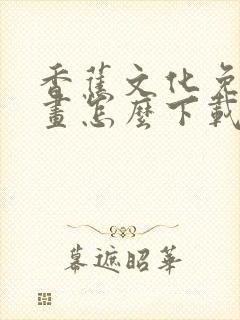 香蕉文化免
畫怎麼下載
幕遮昭華